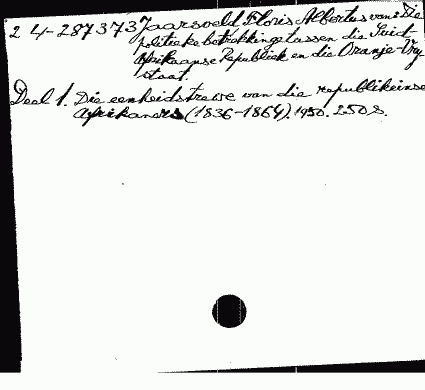 2 4-287373 Jaarsveld Floris Albertus van: Die
politieke betrekkinge tussen die Suid
Afrikaanse Republiek en die Oranje-Vry
staat.
Deel 1. Die eenheidstrewe van die republikeinse
Afrikaners (1836-1864). 1950. 250 S.